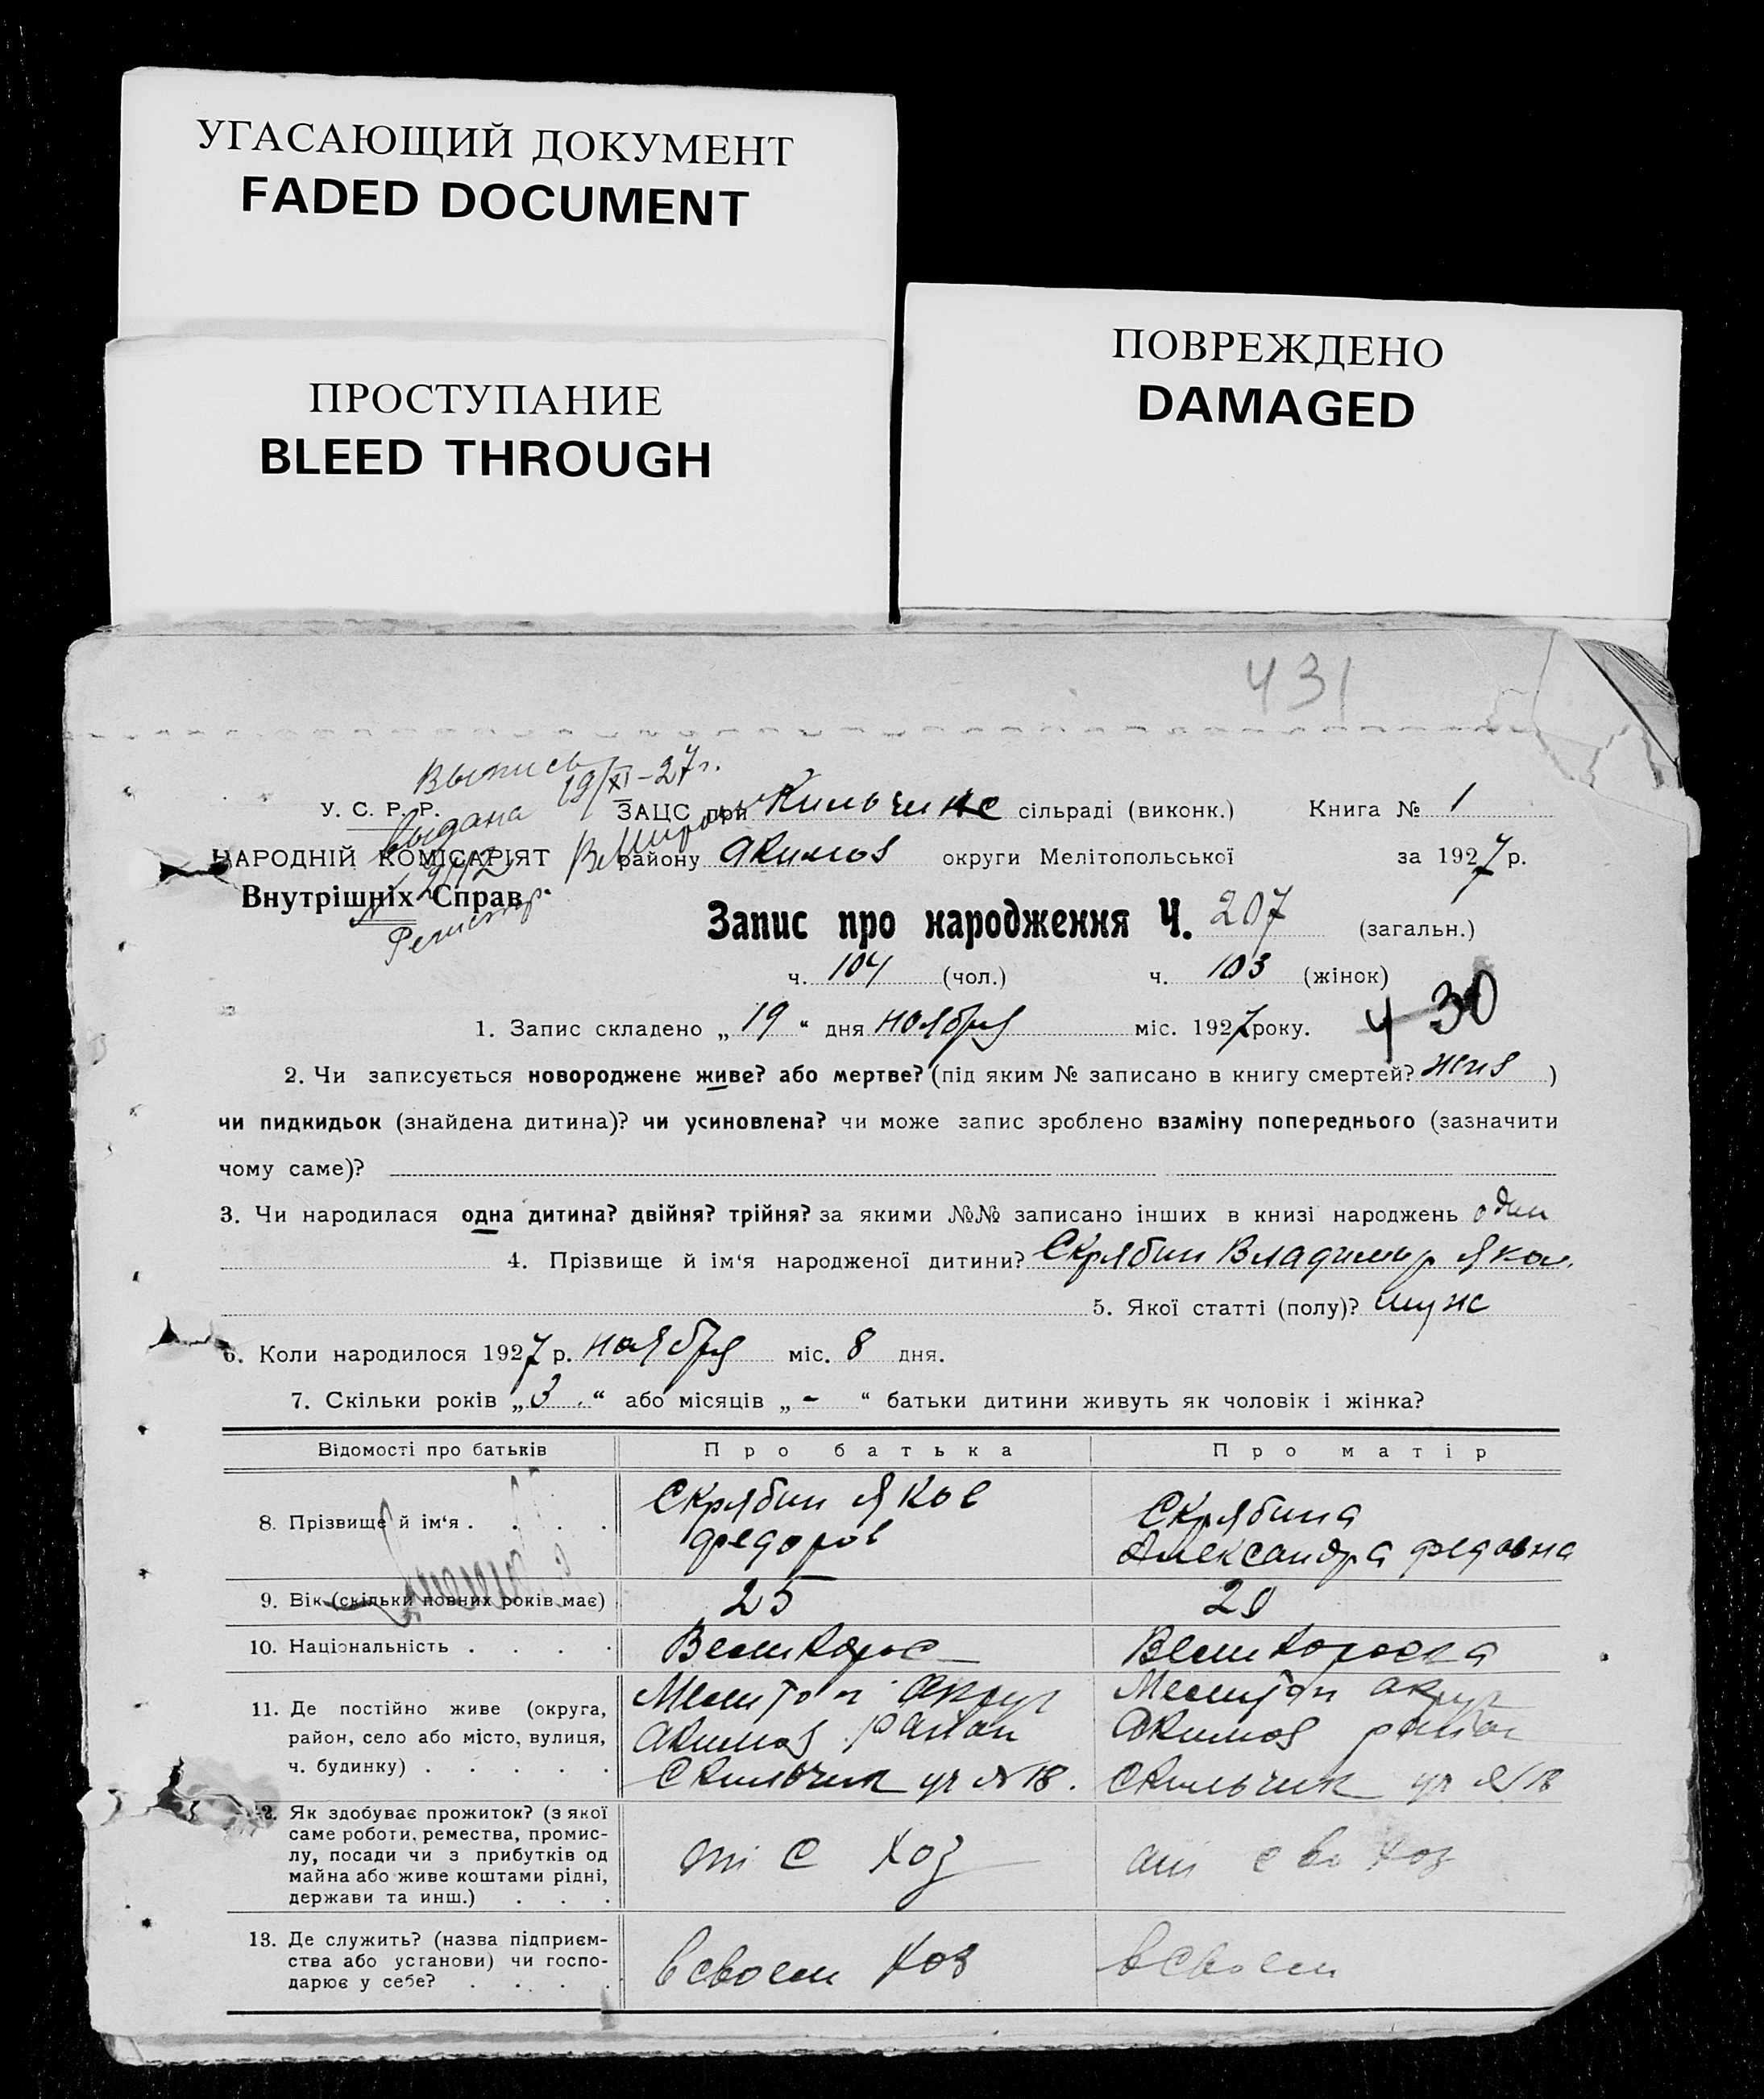 УГАСАЮЩИЙ ДОКУМЕНТ
FADED DOCUMENT
ПРОСТУПАНИЕ
BLEED THROUGH
ПОВРЕЖДЕНО
DAMAGED
431
Выпись
выдана 19/XI-27г.
У. С. Р. Р.
НАРОДНІЙ КОМІСАРІЯТ
Внутрішніх Справ
ЗАЦС при сільраді (виконк.) Книга № 1
району Акимов округи Мелітопольської за 1927 р.
Запис про народження Ч. 207 (загальн.)
ч. 104 (чол.) ч. 103 (жінок)
430
1. Запис складено „ 19 “ дня ноября міс. 1927 року.
2. Чи записується новороджене живе? або мертве? (під яким № записано в книгу смертей? )
чи пидкидьок (знайдена дитина)? чи усиновлена? чи може запис зроблено взаміну попереднього (зазначити
чому саме)?
3. Чи народилася одна дитина? двійня? трійня? за якими №№ записано інших в книзі народжень один
4. Прізвище й ім‘я народженої дитини? Скрябин Владимир Яков.
5. Якої статті (полу)? муж
6. Коли народилося 1927 р. ноября міс. 8 дня.
7. Скільки років „ 3 “ або місяців „ - “ батьки дитини живуть як чоловік і жінка?
Відомості про батьків Про батька Про матір
8. Прізвище й ім‘я . . . .
Скрябин Яков
Федоров
Скрябина
Александра Федовна
9. Вік (скільки повних років має) 25 20
10. Національність . . . . Великорос Великороска
11. Де постійно живе (округа,
район, село або місто, вулиця,
ч. будинку) . . . . .
Мелитоп округ
Акимов район
С Кильчик ул №18.
Мелитоп округ
Акимов район
С Кильчик ул №18
12. Як здобуває прожиток? (з якої
саме роботи, ремества, промис-
лу, посади чи з прибутків од
майна або живе коштами рідні,
держави та инш.) . . .
от с хоз
от с во хоз
13. Де служить? (назва підприєм-
ства або установи) чи госпо-
дарює у себе? . . . .
в своем хоз
в своем